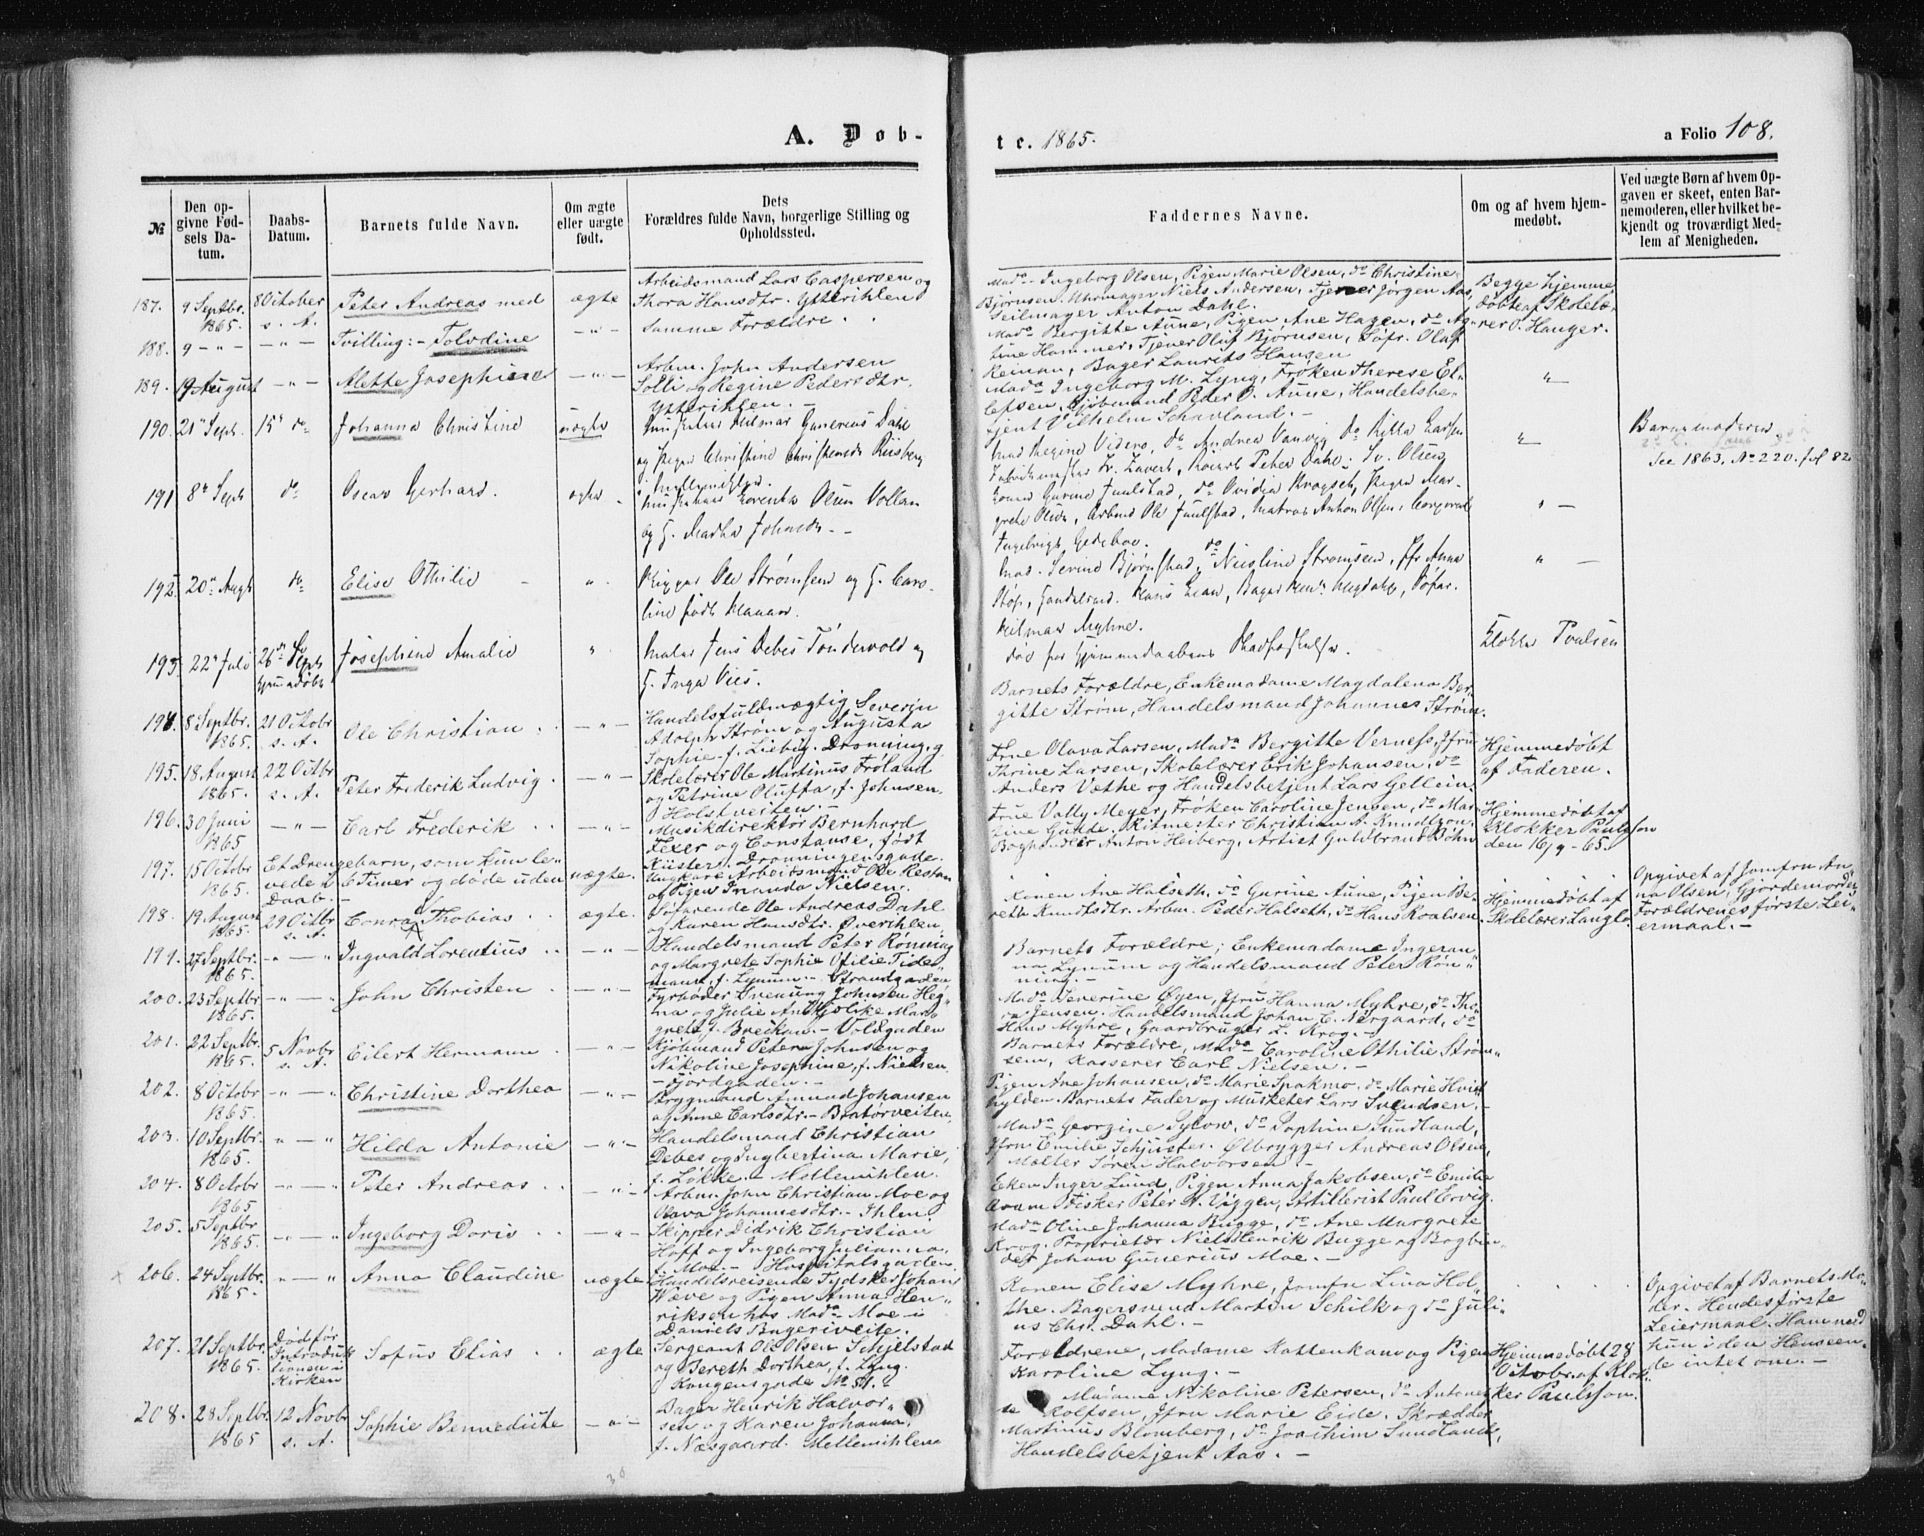 A. Døb-
te. 1865.
a Folio 108.
№
Den op-
givne Fød-
sels Da-
tum.
Daabs-
Datum.
Barnets fulde Navn.
Om ægte
eller uægte
født.
Dets
Forældres fulde Navn, borgerlige Stilling og
Opholdssted.
Faddernes Navne.
Om og af hvem hjem-
medøbt.
Ved uægte Børn af hvem Op-
gaven er skeet, enten Bar-
nemoderen, eller hvilket be-
kjendt og troværdigt Med-
lem af Menigheden.
187. 9 Septbr. 1865. 8 October s. A. Peter Andreas med ægte
Arbeidsmand Lars Caspersen og
Thora Hansdtr. Ytterihlen
Mada Ingeborg Olsen, Pigen Marie Olsen, do Christine
Bjørnsen. Uhrmager Niels Andersen, Tjener Jørgen Aas,
Seilmager Anton Dahl.
Begge hjemme-
døbt af Skolelæ-
rer O. Hauger.
188. 9 -"- -"- Tvilling:- Tolvdine -"-
Samme Forældre.
Mada Bergitte Aune, Pigen Ane Hagen, do
Hammer, Tjener Oluf Bjørnsen, Søfr. Olaf
Reiman, Bager Laurits Hansen
189. 19 August -"- Alette Josephine -"-
Arbm. John Andersen
Solli og Regine Pedersdtr.
Ytterihlen. -
Mada Ingeborg M. Lyng, Frøken Therese El-
lefsen, Kjøbmand Peder O. Aune, Handelsbe-
tjent Vilhelm Schavland. -
190. 21 Sept. 15 do Johanna Christine uægte
Hilmar Gunerius Dahl
og Pigen Christine Riisberg
Mad Regine Videro, do Andrea
Peter Dahl. Olsen
Barnemoderen.
See 1863, No 220. fol 82
191 8de Septb do Oscar Gerhard. ægte
Lorents Olsen Vollan
og H. Martha Johnsdr. -
Gurine Juulstad, do Ovidia Krogseth, Pigen Mar-
grete Olsen, Arbmd Ole Juulstad, Matros Anton Olsen, Corporal
192. 20de Augst do Elise Othilie "
Rigger Ole Strømsem og H. Caro-
line født
Mad. Serine Bjørnstad, do Nicoline Strømsem, Jfr Anna
Hilmar Myhre.
193. 22de Juli 26de Septb hjemmedøbt Josephine Amalie "
Maler Jens Debes Tøndervold og
H. Inga Viis.
død før Hjemmedaabens Stadfæstelse.
Klokker Paulsen
194. 8 Septbr. 1865. 21 Octobr s. A. Ole Christian. -"-
Handelsfuldmægtig Severin
Adolph Strøm og Augusta
Sophie f. Liebig. Dronning. g.
Barnets Forældre, Enkemadame Magdalena Ber-
gitte Strøm, Handelsmand Johannes Strøm.
195. 18 August 1865. 22 Octbr s. A. Peter Frederik Ludvig. -"-
Skolelærer Ole Martinus Frøland
og Petrine Oluffa, f. Johnsen.
Holstveiten. -
Frue Olava Larsen, Mada Bergitte Verness, Jfru
Thrine Larsen, Skolelærer Erik Johansen, do
Anders Væthe og Handelsbetjent Lars Gellein.
Hjemmedøbt
af Faderen.
196. 30 Juni 1865 -"- Carl Frederik. -"-
Musikdirektør Bernhard
Feier og Constanse, født
Küster. Dronningensgade.
Frue Vally Meyer, Frøken Caroline Jensen, do Mar-
tine Gaade. Ritmester Christian A. Knudtzon,
Boghandler Anton Heiberg, Artist Guldbrand Bøhn
Hjemmedøbt af
Klokker Paulsson
den 16/9 - 65.
197. 15 Octbr 1865. Et Drengebarn, som kun le-
vede i 6 Timer og døde uden
Daab. - uægte.
Ungkarl Arbeidsmand Ole Restan
og Pigen Inanda Nielsen.
Opgivet af Jomfru An-
na Olsen, Gjordemoder.
Forældrenes første Lei-
ermaal. -
198. 19 August 1865. 29 Octbr s. A. Conrad Thobias. ægte.
Søfarende Ole Andreas Dahl
og Karen Hansdtr. Øverihlen.
Konen Ane Halseth, do Gurine Aune, Pigen Be-
reth Knudtsdtr. Arbm. Peder Halseth, do Hans Roalsen.
Hjemmedøbt af
Skolelærer Langlo.
199. 27 Septbr. 1865. -"- Ingvald Lorentius. -"-
Handelsmand Peter Rønning
og Margrete Sophie Otilie Tide-
mand, f. Lynum. - Strandgaden
Barnets Forældre; Enkemadame Ingeran-
na Lynum og Handelsmand Peter Røn-
ning. -
200. 23 Septbr. 1865. -"- John Christen. -"-
Fyrbøder Svenung Johnsen Heg-
na og Julie Anthjolike Mar-
grete f. Breckan. - Voldgaden
Mada Severine Øyen, Jfru Hanna Myhre, do Tho-
ra Jensen. Handelsmand Johan E. Nergaard, do
Hans Myhre, Gaardbruger L. Krog. -
201. 22 Septbr. 1865. 5 Novbr. s. A. Eilert Hermann. -"-
Kjøbmand Petern Johnsen og
Nikoline Josephine, f. Nielsen.
- Fjordgaden. -
Barnets Forældre, Mada Caroline Othilie Strøm-
sem, Kasserer Carl Nielsen. -
202. 8 Octobr 1865. -"- Christine Dorthea -"-
Bryggmand Amund Johansen
og Anne Carlsdtr. - Bratørveiten.
Pigen Ane Johansen, do Marie Spakmo, do Marie Hvid
hylden. Barnets Fader og Musketer Lars Svendsen. -
203. 10 Septbr. 1865. -"- Hilda Antonie -"-
Handelsmand Christian
Debes og Ingbertina Marie,
f. Løkke. - Mellemihlen.
Mada Georgine Sylow, do Sophine Sundland,
Jfru Emilie Schjuster. Ølbrygger Andreas Olsen,
Malter Søren Halvorsen. -
204. 8 Octobr 1865 -"- Peter Andreas. -"-
Arbm. John Christian Moe og
Olava Johannesdtr. - Ihlen.
Enken Inger Lund, Pigen Anna Jakobsen, do Emilie
Aram. Fisker Peter A. Viggen, Artillerist Paul Ervig.
205. 5 Septbr 1865. -"- Ingeborg Doris. -"-
Skipper Didrik Christian
Hoff og Ingeborg Julianna,
f. Moe. - Hospitalsgaden.
Mada Oline Johanna Bugge, do Ane Margrete
Krog. Proprietær Niels Henrik Bugge og Bogbin-
der Johan Gunerius Moe. -
x 206. 24 Septbr. 1865. -"- Anna Claudine uægte
Handelsreisende Tydsker Johan
Wæve og Pigen Anna Hen-
riksen hos Mada Moe i
Daniels Bageriveite.
Konen Elise Myhre, Jomfru Lina Hol-
the. Bagersvend Martin Schilk og do Juli-
us Chr. Dahl. -
Opgivet af Barnets Mo-
der. Hendes første
Leiermaal. Ham med
hun i den Henseen-
de intet om. -
207. 21 Septbr. 1865. Død før
Introduk-
tionen i
Kirken Sofus Elias. ægte
Sergeant Ole Olsen Schjelstad
og Bereth Dorthea, f. Lyng.
Kongensgade No 51.
Forældrene, Madame Kattenkamp og Pigen
Karoline Lyng. -
Hjemmedøbt 28
Octobr. af Klok-
ker Paulsson.
208. 28 Septbr. 1865 12 Novbr s. A. Sophie Bennedicte -"-
Bager Henrik Halvor-
sen og Karen Johanna,
f. Næsgaard. Mellemihlen
Madame Nikoline Petersen, do Antonet-
te Rolfsen, Jfru Marie Eide. Skrædder
Martinus Blomberg, do Joachim Sundland,
Handelsbetjent Aas. -